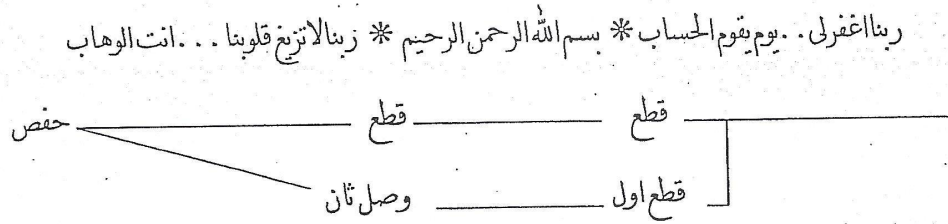 ربنااغفرلى . . يوم يقوم الحساب * بسم الله الرحمن الرحيم * زبنالاتزيغ قلوبنا . . . انت الوهاب
قطع قطع حفص
قطع اول وصل ثان